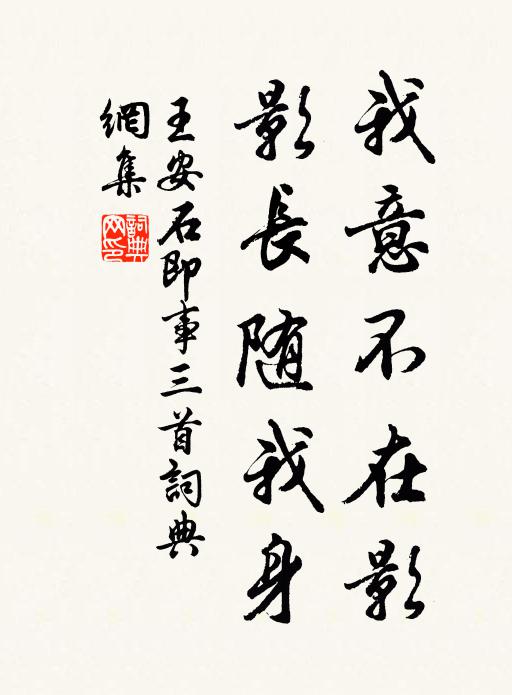 我意不在影
影長随我身
王安石即事三首詞典
網集
詞典
网印